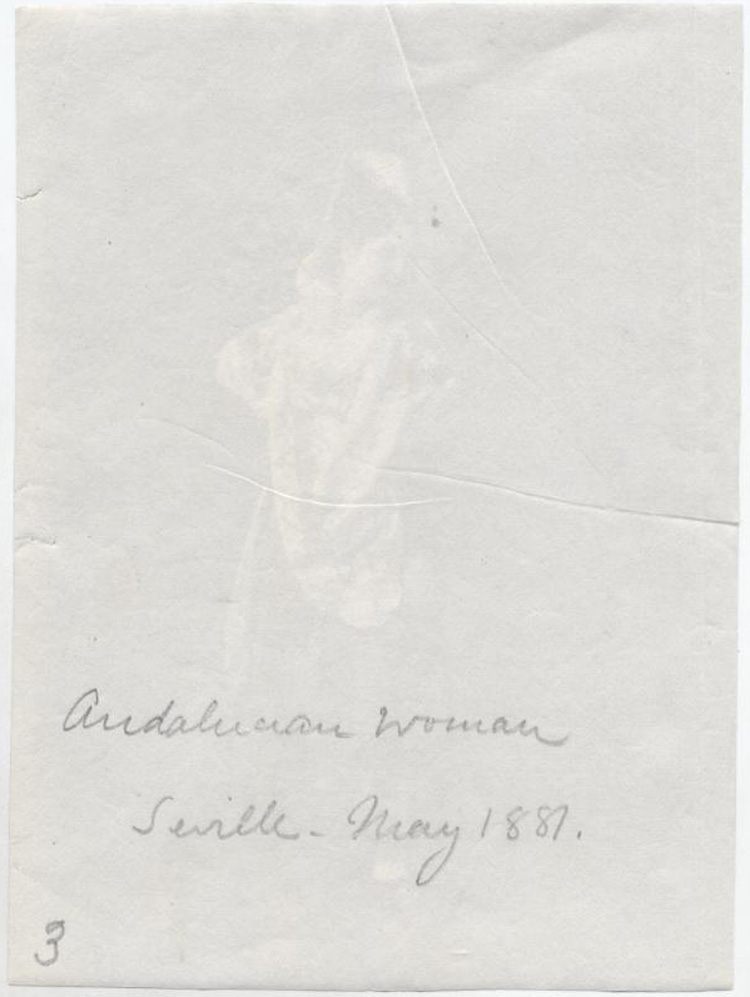 Andalucian Woman
Seville - May 1881.
3